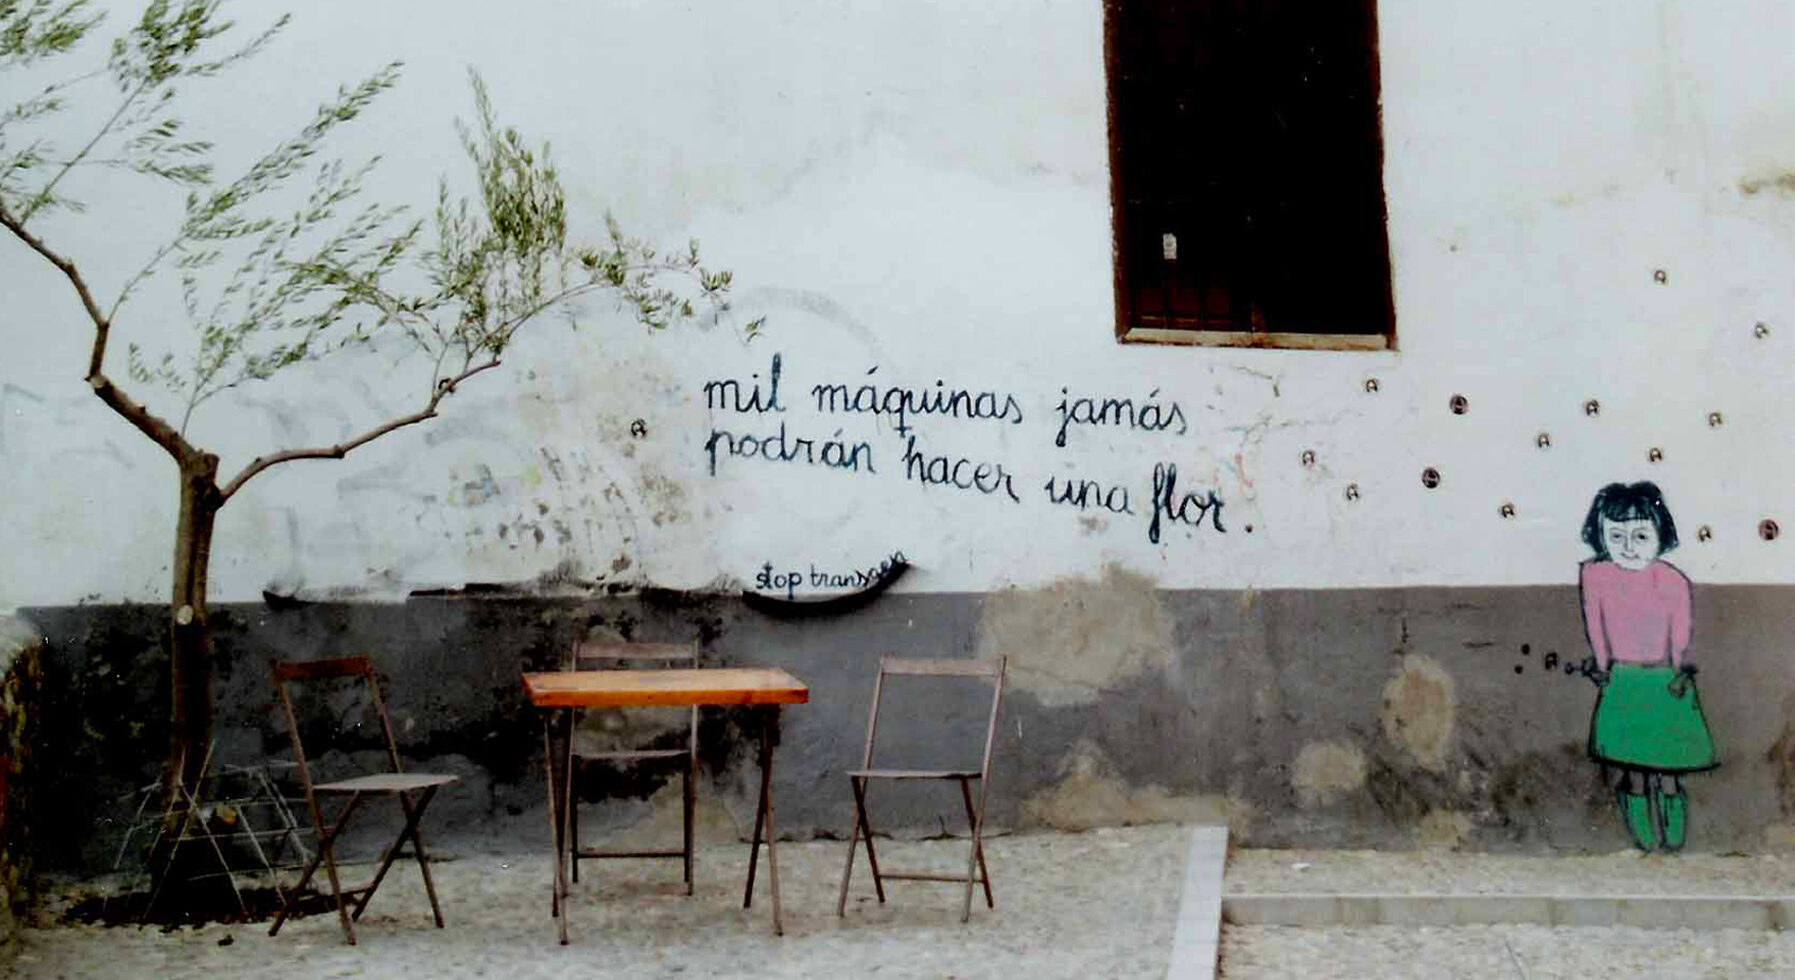 mil máquinas jamás
podrán hacer una flor.
stop transgen